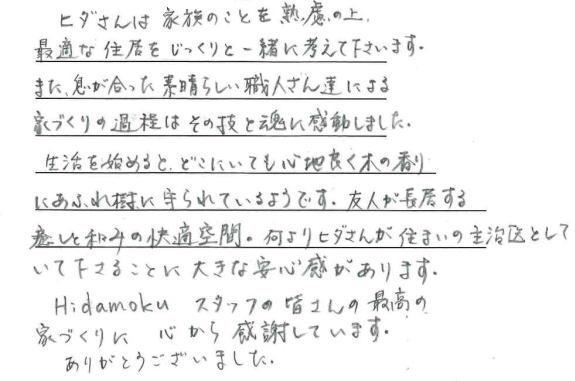 ヒダさんは 家族のことを熟慮の上、
最適な住居をじっくりと一緒に考えて下さいます。
また、息が合った素晴らしい職人さん達による
家づくりの過程はその技と魂に感動しました。
生活を始めると、どこにいても心地良く木の香り
にあふれ樹に守られているようです。友人が長居する
癒しと和みの快適空間。何よりヒダさんが住まいの主治医として
いて下さることに大きな安心感があります。
Hidamoku スタッフの皆さんの最高の
家づくりに 心から感謝しています。
ありがとうございました。